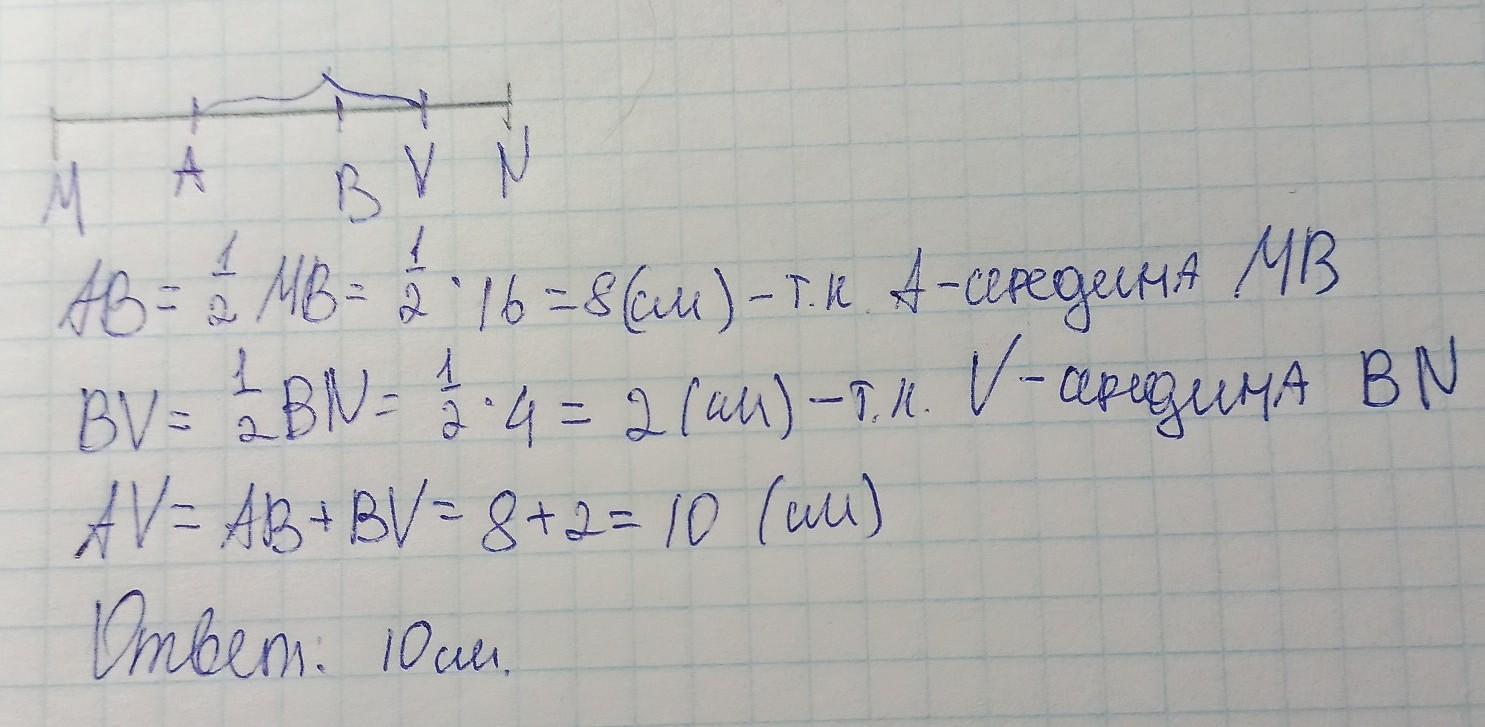 M A B V N
AB = 1/2 MB = 1/2 · 16 = 8 (см) – т.к. A – середина MB
BV = 1/2 BN = 1/2 · 4 = 2 (см) – т.к. V – середина BN
AV = AB + BV = 8 + 2 = 10 (см)
Ответ: 10 см.